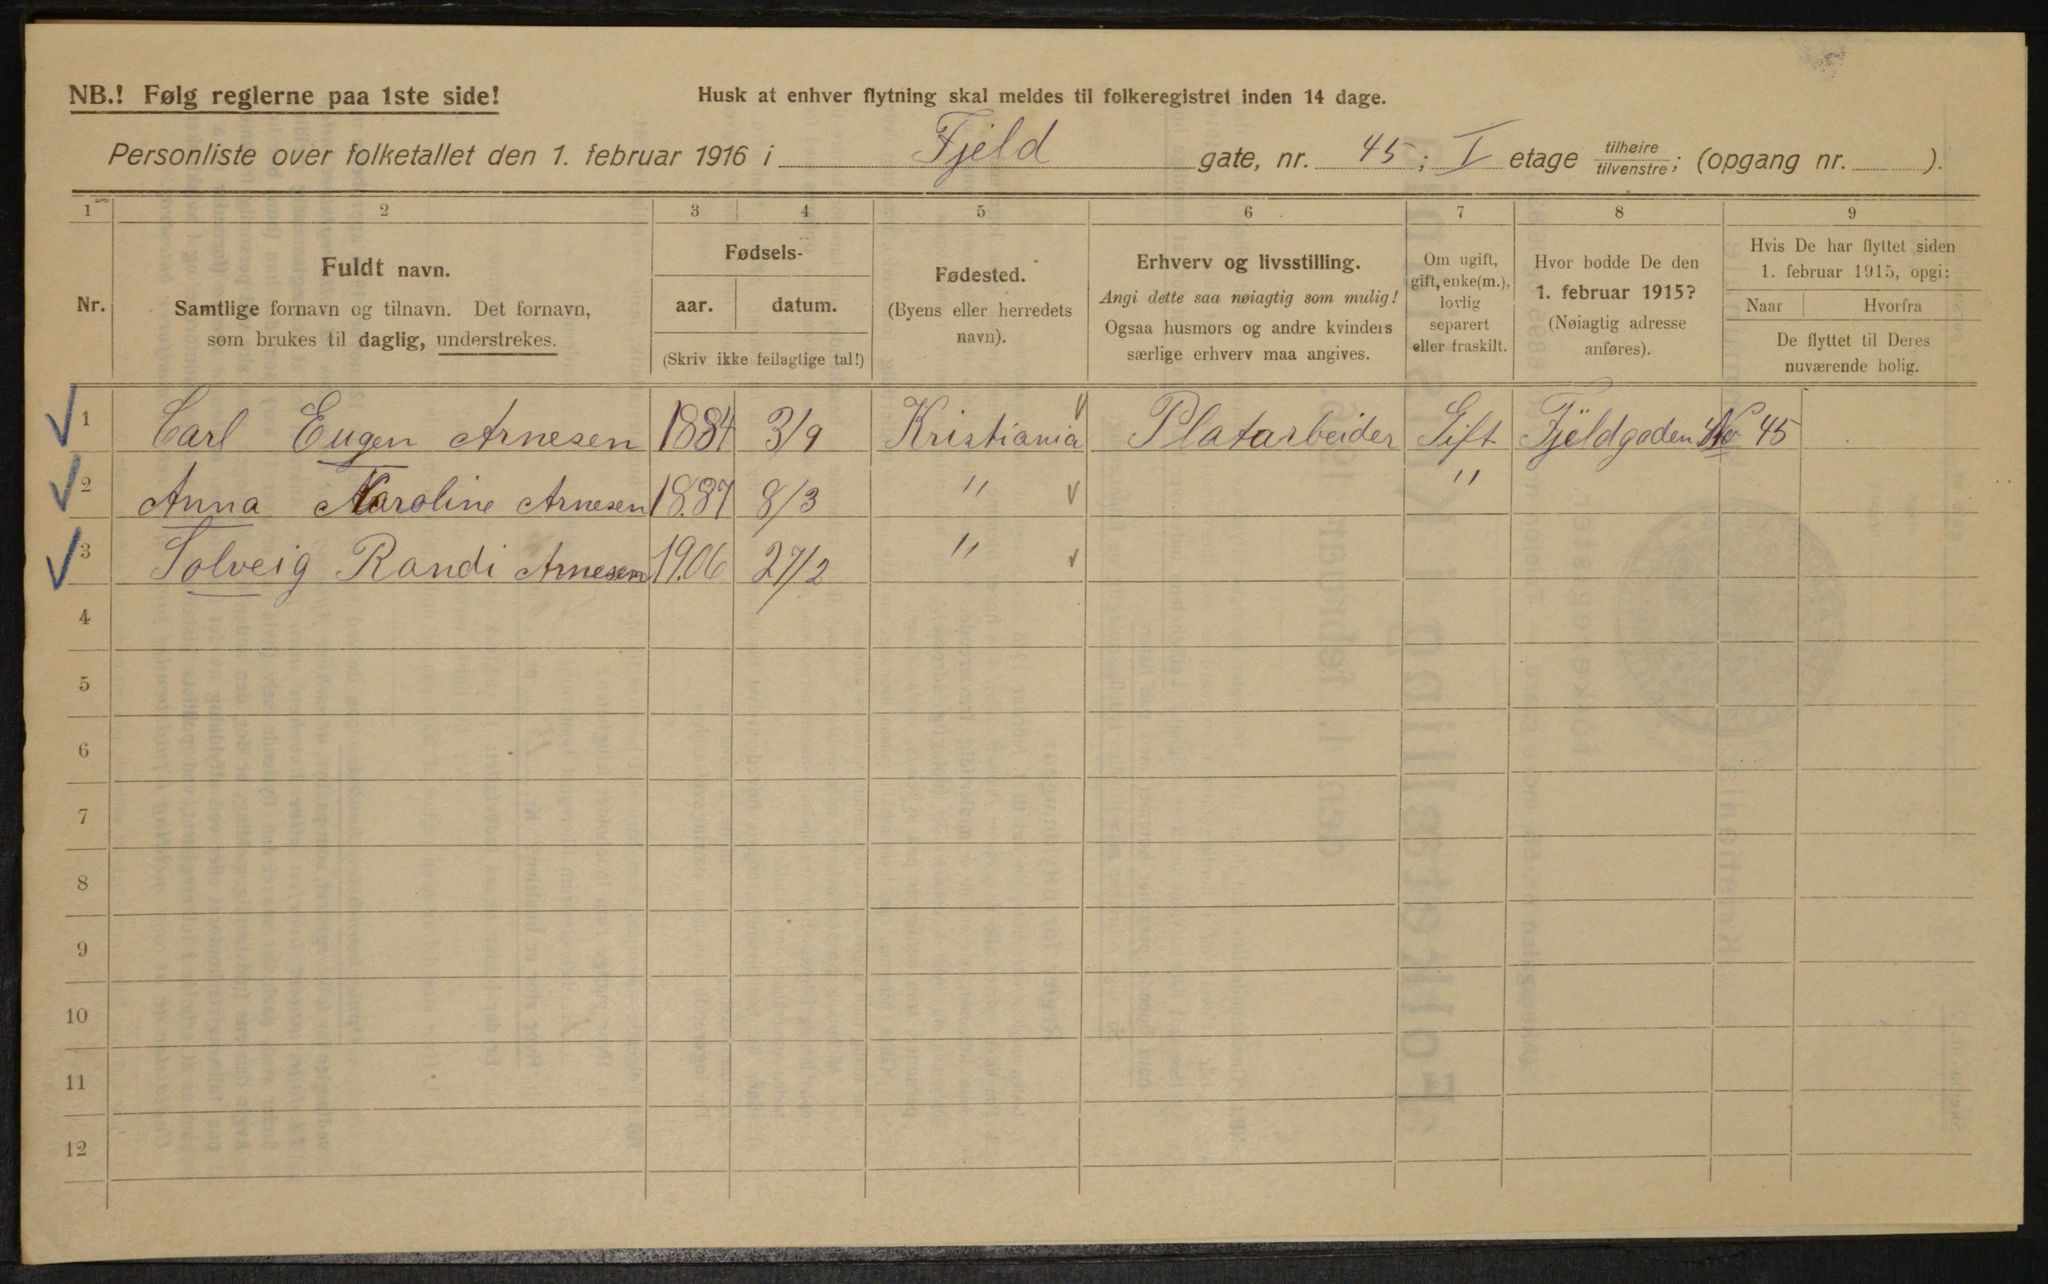 NB.! Følg reglerne paa 1ste side!
Husk at enhver flytning skal meldes til folkeregistret inden 14 dage.
Personliste over folketallet den 1. februar 1916 i Fjeld gate, nr. 45; I etage tilhøire/tilvenstre; (opgang nr. ).
1 2 3 4 5 6 7 8 9
Nr.
Fuldt navn.
Samtlige fornavn og tilnavn. Det fornavn,
som brukes til daglig, understrekes.
Fødsels-
aar. datum.
(Skriv ikke feilagtige tal!)
Fødested.
(Byens eller herredets
navn).
Erhverv og livsstilling.
Angi dette saa nøiagtig som mulig!
Ogsaa husmors og andre kvinders
særlige erhverv maa angives.
Om ugift,
gift, enke(m.),
lovlig
separert
eller fraskilt.
Hvor bodde De den
1. februar 1915?
(Nøiagtig adresse
anføres).
Hvis De har flyttet siden
1. februar 1915, opgi:
Naar Hvorfra
De flyttet til Deres
nuværende bolig.
1 Carl Eugen Arnesen 1884 3/9 Kristiania Platarbeider Gift Fjeldgaden No 45
2 Anna Karoline Arnesen 1887 8/3 " "
3 Solveig Randi Arnesen 1906 27/2 "
4
5
6
7
8
9
10
11
12